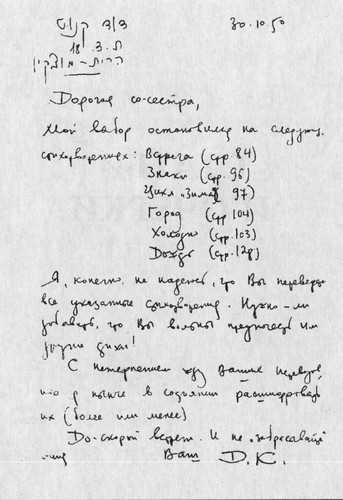 דוד קנוט
ת.ד. 18
קרית-מוצקין
30.10.50
Дорогая со-сестра,
Мой выбор остановился на следующ.
стихотворениях: Встреча (стр. 84)
Знаки (стр. 96)
Цикл „Зима" 97)
Город (стр 104)
Холодно (стр. 103)
Дождь (стр. 128)
Я, конечно, не надеюсь, что Вы переведете
все указанные стихотворения. Нужно-ли
добавить, что Вы вольны предпочесть им
другие стихи!
С нетерпением жду Ваших переводов,
что я нынче в состоянии расшифровать
их (более или менее)
До-скорой встречи. И не
Ваш Д. К.